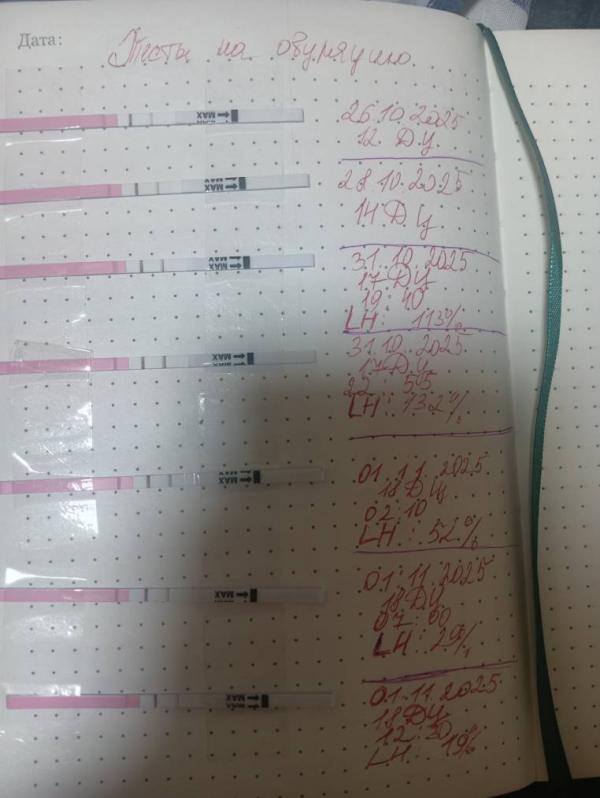 Дата:
Тесты на овуляцию
MAX
26.10.2025
12 ДЦ
MAX
28.10.2025
14 ДЦ
MAX
31.10.2025
17 ДЦ
19:40
LH: 113%
MAX
31.10.2025
17 ДЦ
22:55
LH: 132%
MAX
01.11.2025
18 ДЦ
02:10
LH: 52%
MAX
01.11.2025
18 ДЦ
07:00
LH: 29%
MAX
01.11.2025
18 ДЦ
12:30
LH: 19%